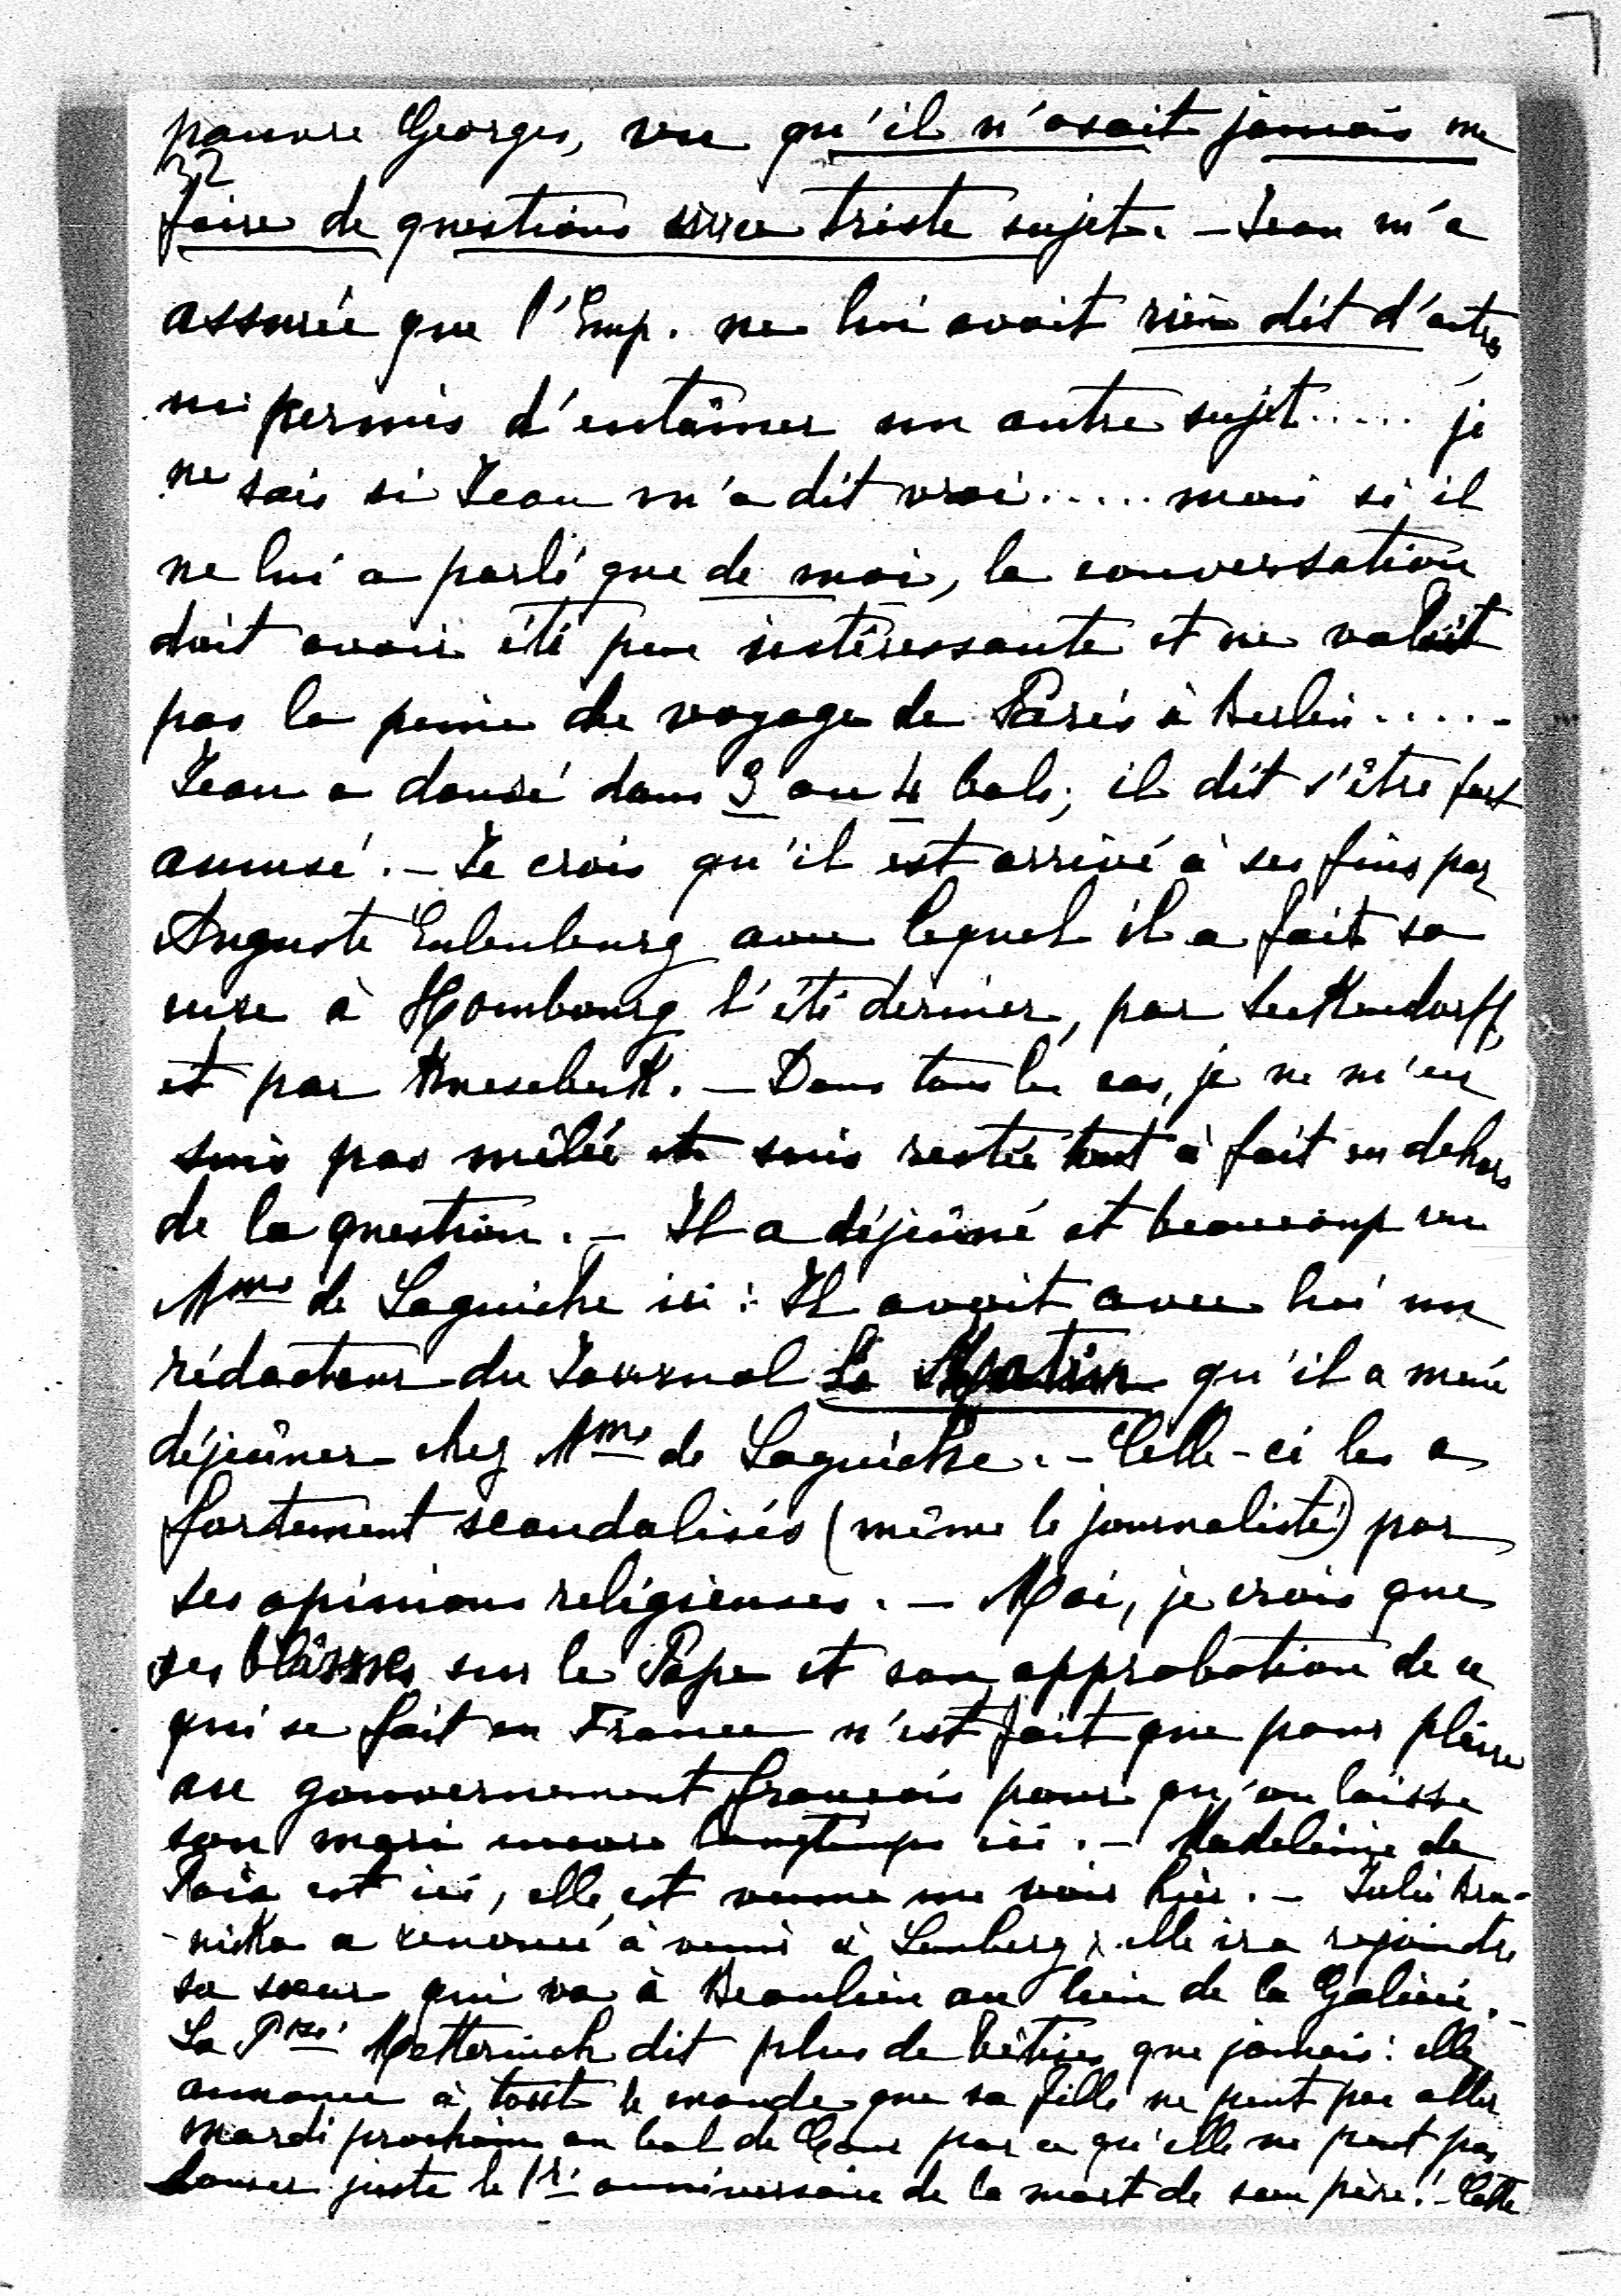 pauvre Georges, vu qu'il n'osait jamais me
32
faire de questions sur ce triste sujet. – Jean m'a
assurée que l'Emp. ne lui avait rien dit d'autre
ni permis d'entâmer un autre sujet..... je
ne sais si Jean m'a dit vrai..... mais si il
ne lui a parlé que de moi, la conversation
doit avoir été peu intéressante et ne valait
pas la peine du voyage de Paris à Berlin.....
Jean a dansé dans 3 ou 4 bals; il dit s'être fort
amusé. – Je crois qu'il est arrivé à ses fins par
Auguste Eulenburg avec lequel il a fait sa
cure à Hombourg l'été dernier, par Seckendorff,
et par Knesebeck. – Dans tous les cas, je ne m'en
suis pas mêlée et suis restée tout à fait en dehors
de la question. – Il a déjeûné et beaucoup vu
Mme de Laguiche ici : Il avait avec lui un
rédacteur du Journal Le Matin qu'il a mené
déjeûner chez Mme de Laguiche. – Celle-ci les a
fortement scandalisés (même le journaliste) par
ses opinions religieuses. – Moi, je crois que
ses blâmes sur le Pape et son approbation de ce
qui se fait en France n'est fait que pour plaire
au gouvernement français pour qu'on laisse
son mari encore longtemps ici. – Madeleine de
Foix est ici, elle est venue me voir hier. – Julie Bra-
-nicka a renoncé à venir à Lemberg, elle ira rejoindre
sa sœur qui va à Beaulieu au lieu de la Galicie. –
La Psse Metternich dit plus de bêtises que jamais : elle
annonce à tout le monde que sa fille ne peut pas aller
mardi prochain au bal de Cour par ce qu'elle ne peut pas
danser juste le 1r anniversaire de la mort de son père! – Cette